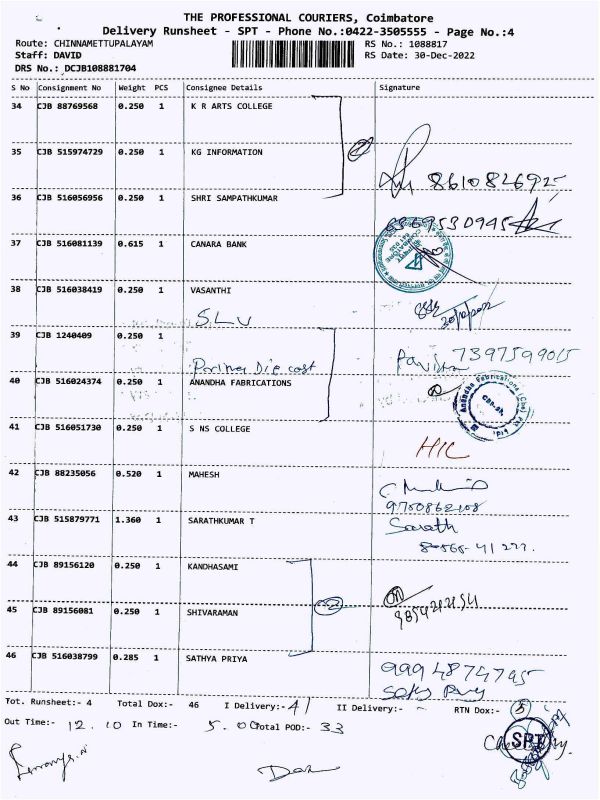 THE PROFESSIONAL COURIERS, Coimbatore
Delivery Runsheet - SPT - Phone No.:0422-3505555 - Page No.:4
Route: CHINNAMETTUPALAYAM
RS No.: 1088817
Staff: DAVID
RS Date: 30-Dec-2022
DRS No.: DCJB108881704
S No Consignment No Weight PCS Consignee Details Signature
34 CJB 88769568 0.250 1 K R ARTS COLLEGE
35 CJB 515974729 0.250 1 KG INFORMATION
861082692
36 CJB 516056956 0.250 1 SHRI SAMPATHKUMAR
6369530945
37 CJB 516081139 0.615 1 CANARA BANK
38 CJB 516038419 0.250 1 VASANTHI
SLV
39 CJB 1240409 0.250 1
7397599015
Die cast
40 CJB 516024374 0.250 1 ANANDHA FABRICATIONS
Anandha Fabrications (Cbe) Pvt
41 CJB 516051730 0.250 1 S NS COLLEGE
HIL
42 CJB 88235056 0.520 1 MAHESH
43 CJB 515879771 1.360 1 SARATHKUMAR T
Sarath
44 CJB 89156120 0.250 1 KANDHASAMI
45 CJB 89156081 0.250 1 SHIVARAMAN
46 CJB 516038799 0.285 1 SATHYA PRIYA
9994874795
Tot. Runsheet:- 4 Total Dox:- 46 I Delivery:- 41 II Delivery:- - RTN Dox:- 5
Out Time:- 12.10 In Time:- 5.00 Total POD:- 33
SPT